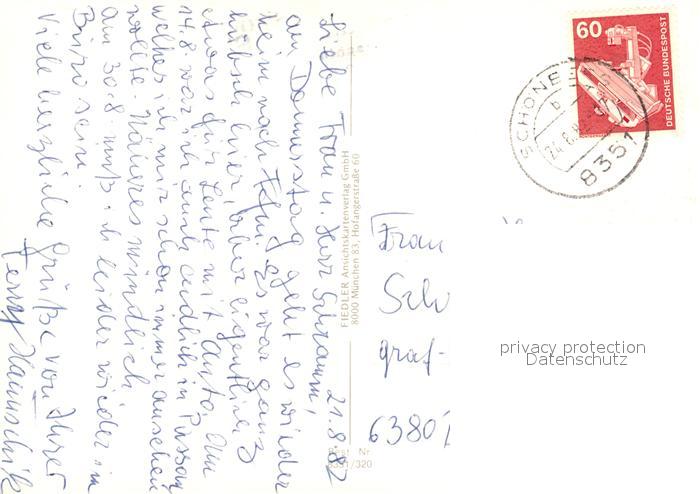 21.8.82
Liebe Frau u. Herr Schramm,
am Donnerstag geht es wieder
heim nach Ffm. Es war ganz
hübsch hier, aber eigentlich
etwas für Leute mit Auto. Am
14.8. war ich auch endlich in Passau
welches ich mir schon immer ansehen
wollte. Näheres mündlich.
Am 30.8. muß ich leider wieder im
Büro sein.
Viele herzliche Grüße von Ihrer
FIEDLER Ansichtskartenverlag GmbH
8000 München 83, Hofangerstraße 60
Best. Nr.
8351/320
60
DEUTSCHE BUNDESPOST
SCHÖNE
b
8351
Frau
Sch
graf-
6380
privacy protection
Datenschutz